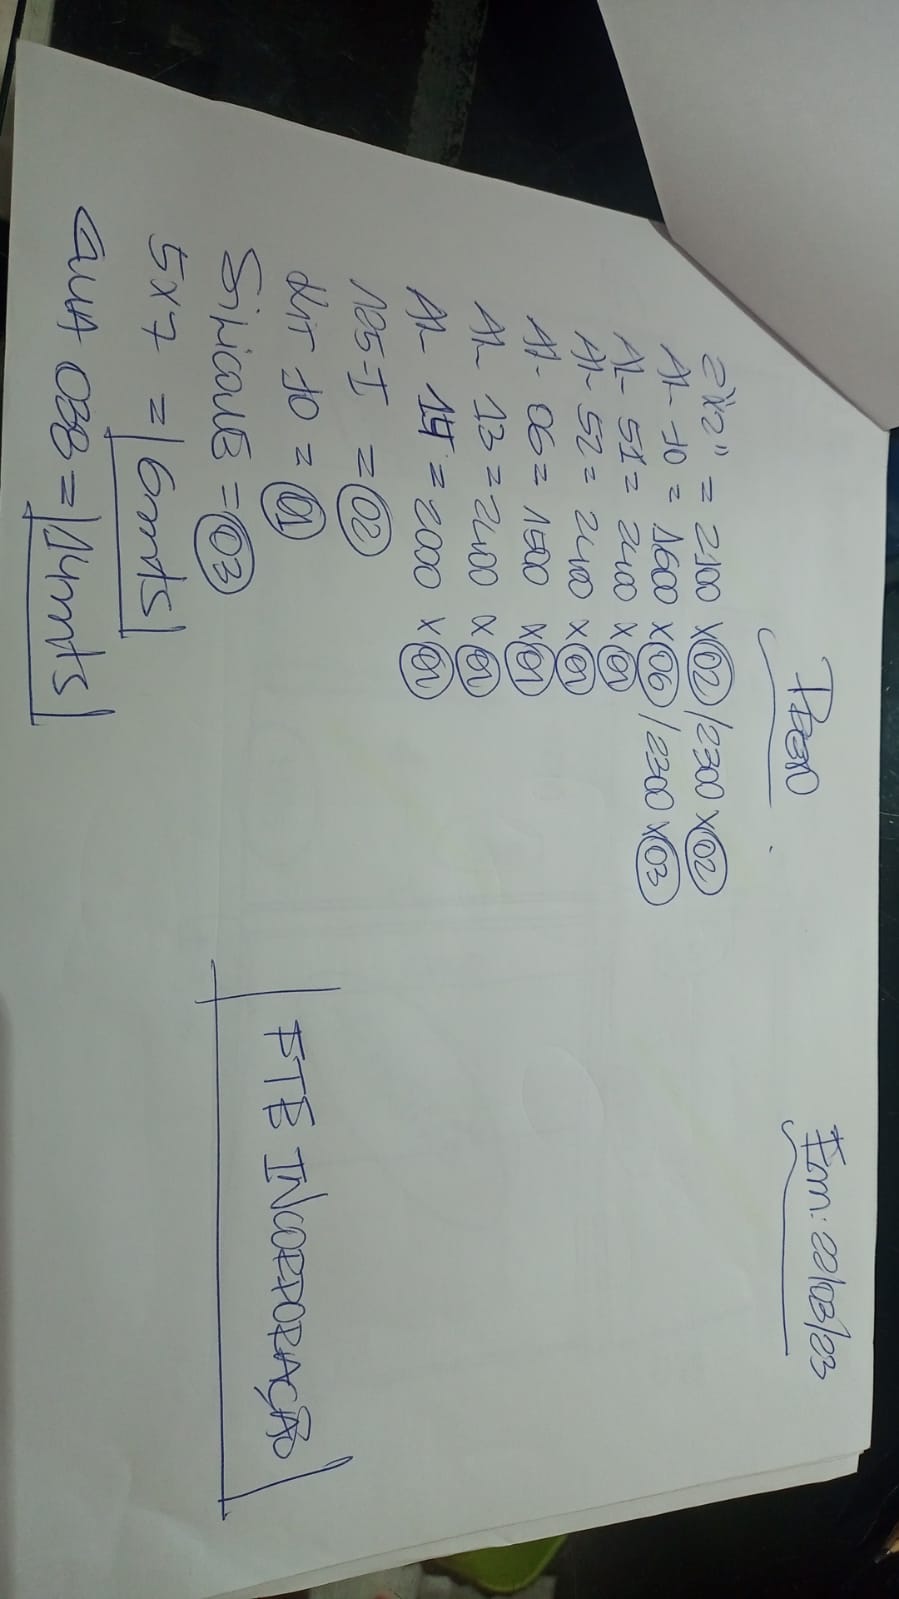 Em: 22/03/23
2"x2" = 2100 x 02 / 2300 x 02
AL-10 = 1600 x 06 / 2300 x 03
AL-51 = 2400 x 01
AL-52 = 2400 x 01
AL-06 = 1500 x 01
AL-13 = 2400 x 01
AL-14 = 2000 x 01
125-I = 02
KIT 10 = 01
SILICONE = 03
5x7 = 6mts
GUIA 038 = 14mts
FTE INCORPORAÇÃO